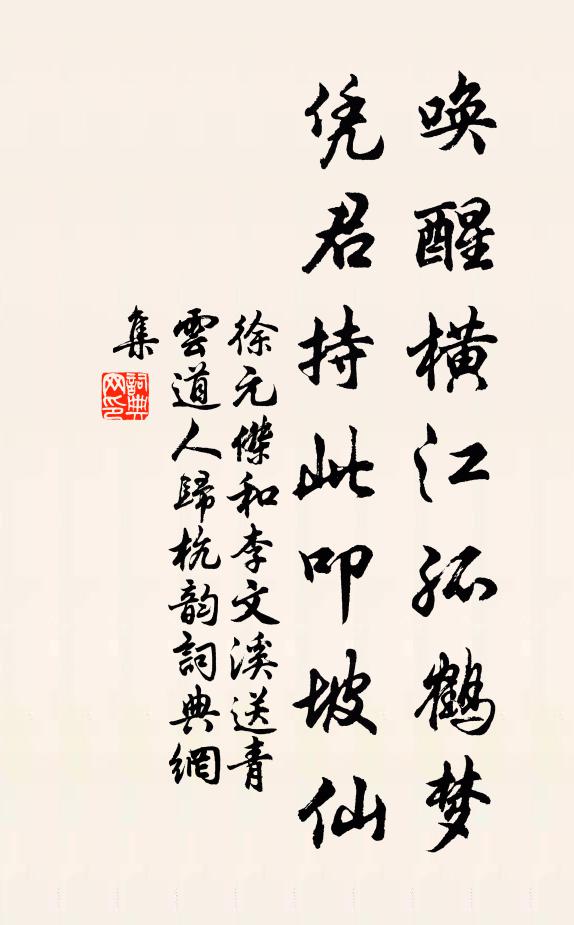 唤醒横江孤鹤梦
凭君持此叩坡仙
徐元傑和李文溪送青
雲道人歸杭韵詞典網
集
詞典网印